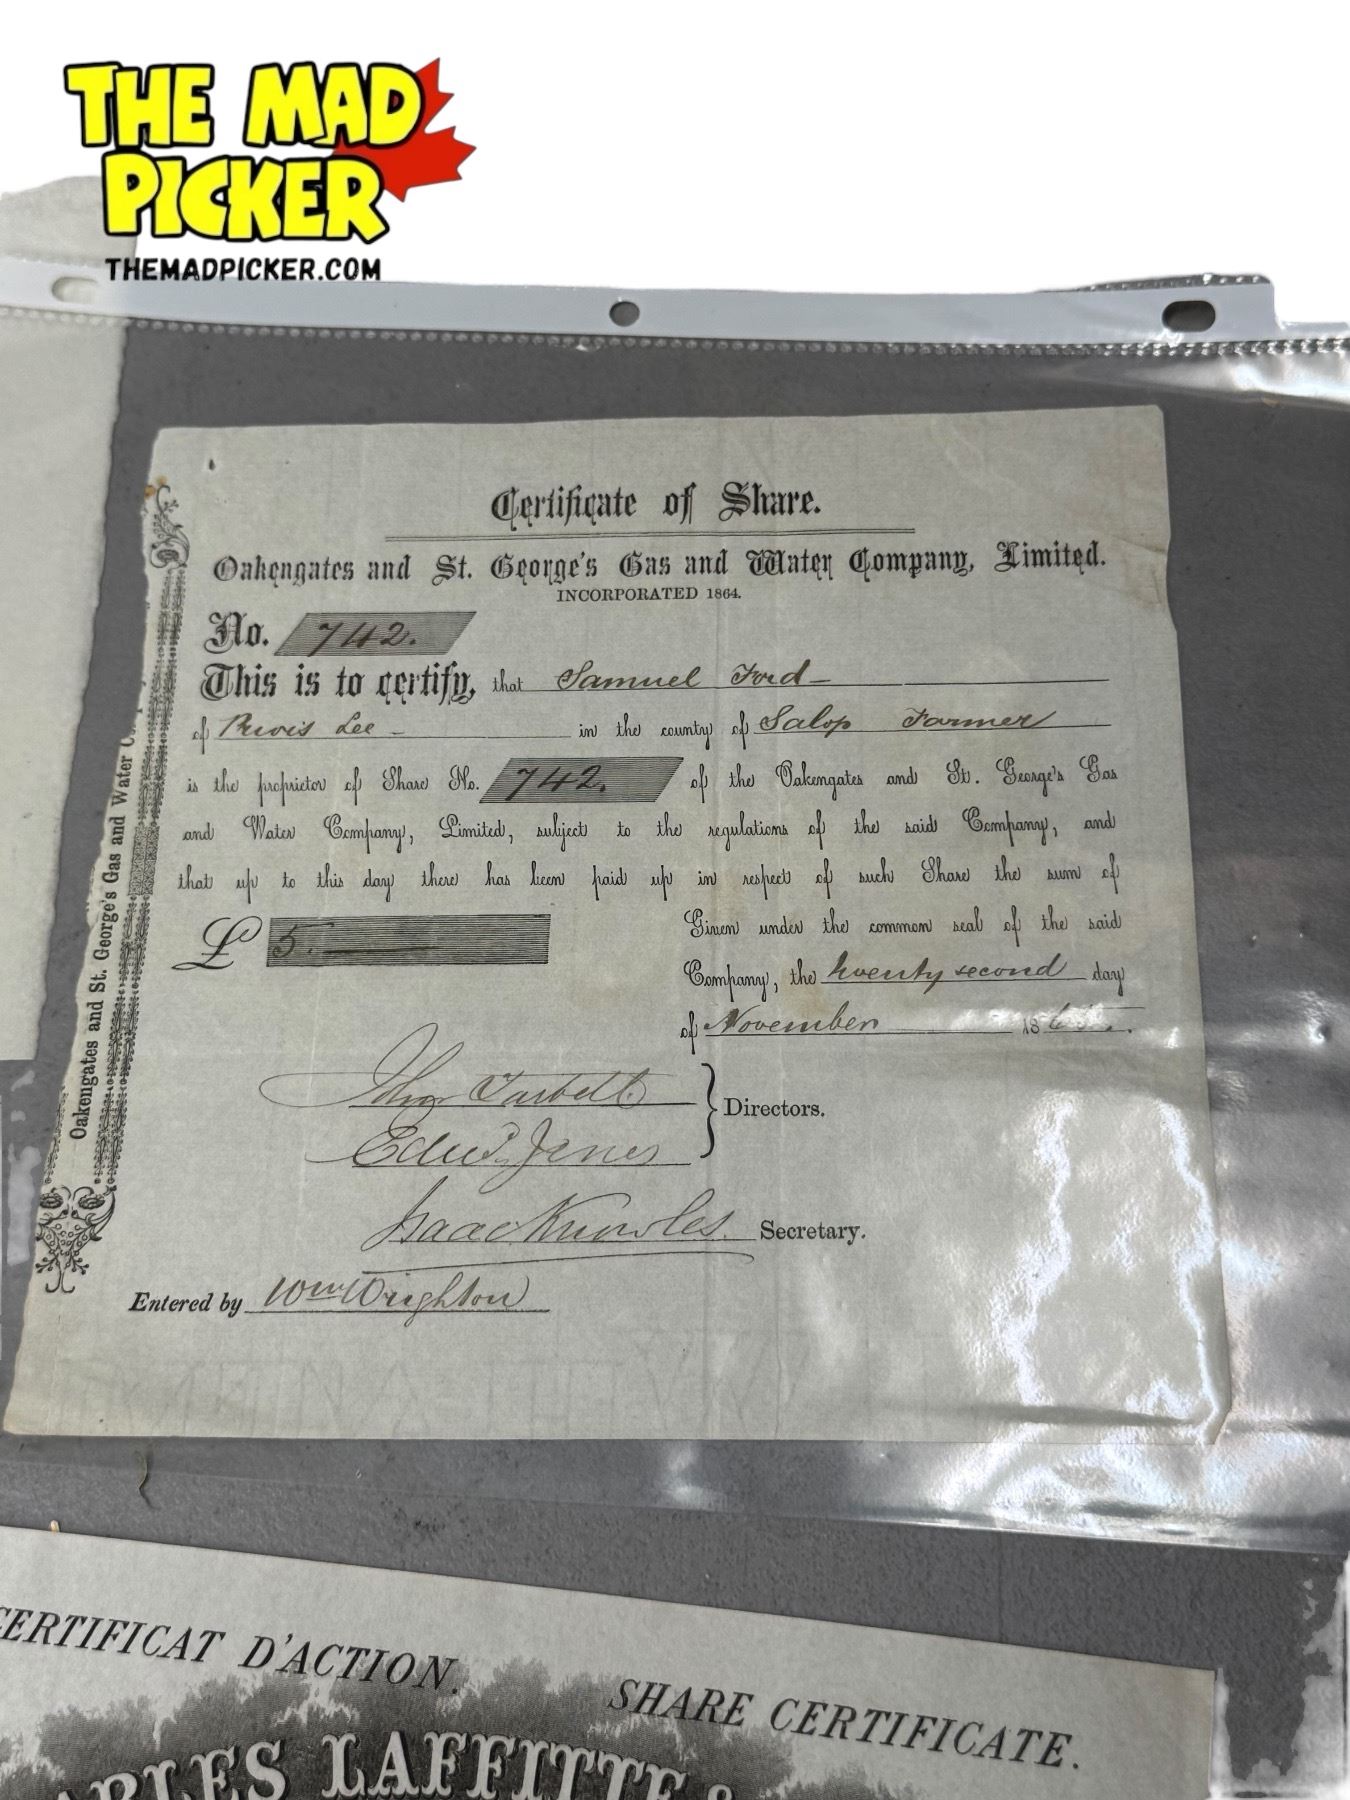 THE MAD
PICKER
THEMADPICKER.COM
Certificate of Share.
Oakengates and St. George's Gas and Water Company, Limited.
INCORPORATED 1864.
No. 742.
This is to certify, that Samuel Ford
of Lee in the county of Salop Farmer
is the proprietor of Share No. 742. of the Oakengates and St. George's Gas
and Water Company, Limited, subject to the regulations of the said Company, and
that up to this day there has been paid up in respect of such Share the sum of
£ 5.
Given under the common seal of the said
Company, the twenty second day
of November 186
John
Edwd. Jones
Directors.
Isaac Knowles. Secretary.
Entered by Wm Wrighton
Oakengates and St. George's Gas and Water
CERTIFICAT D'ACTION.
SHARE CERTIFICATE.
LAFFITTE &